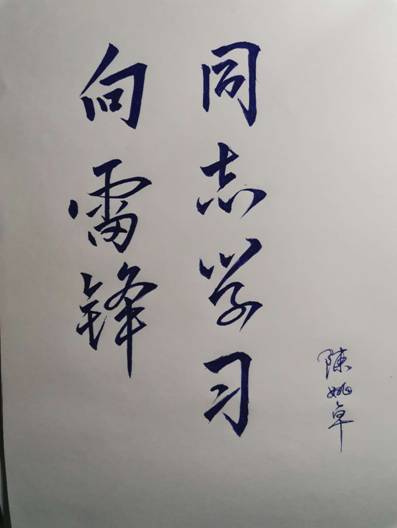 向雷锋
同志学习
陈姚卓